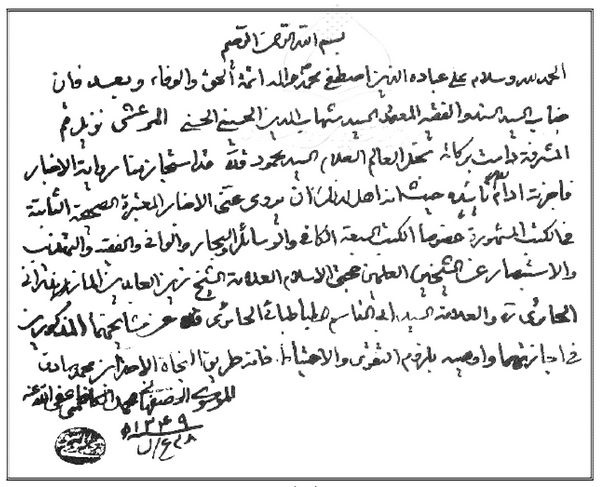 بسم الله الرحمن الرحيم
الحمد لله وسلام على عباده الذين اصطفى محمد وآله ائمة الحق والوفاء وبعد فان
جناب السيد السند والفقيه المعتمد السيد شهاب الدين الحسيني الحسني المرعشي نزيل قم
المشرفة دامت بركاته نجل العالم العلام السيد محمود قده قد استجاز منا رواية الاخبار
فاجزته ادام الله تأييده حيث انه اهل لذلك ان يروي عني الاخبار المعتبرة الصحيحة الثابتة
في الكتب المشهورة خصوصا الكتب السبعة الكافي والوسائل والبحار والوافي والفقيه والتهذيب
والاستبصار عن الشيخين العلمين حجتي الاسلام العلامة الشيخ زين العابدين المازندراني
الحائري ره والعلامة السيد ابي القاسم الطباطبائي الحائري قده عن مشايخهما المذكورين
في اجازتهما واوصيه بلزوم التقوى والاحتياط فانه طريق النجاة الاحقر محمد مهدي
الموسوي الاصفهاني الكاظمي عفى الله عنه
١٣٤٩